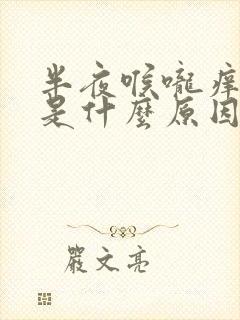 半夜喉嚨痒
是什麽原因
嚴文亮